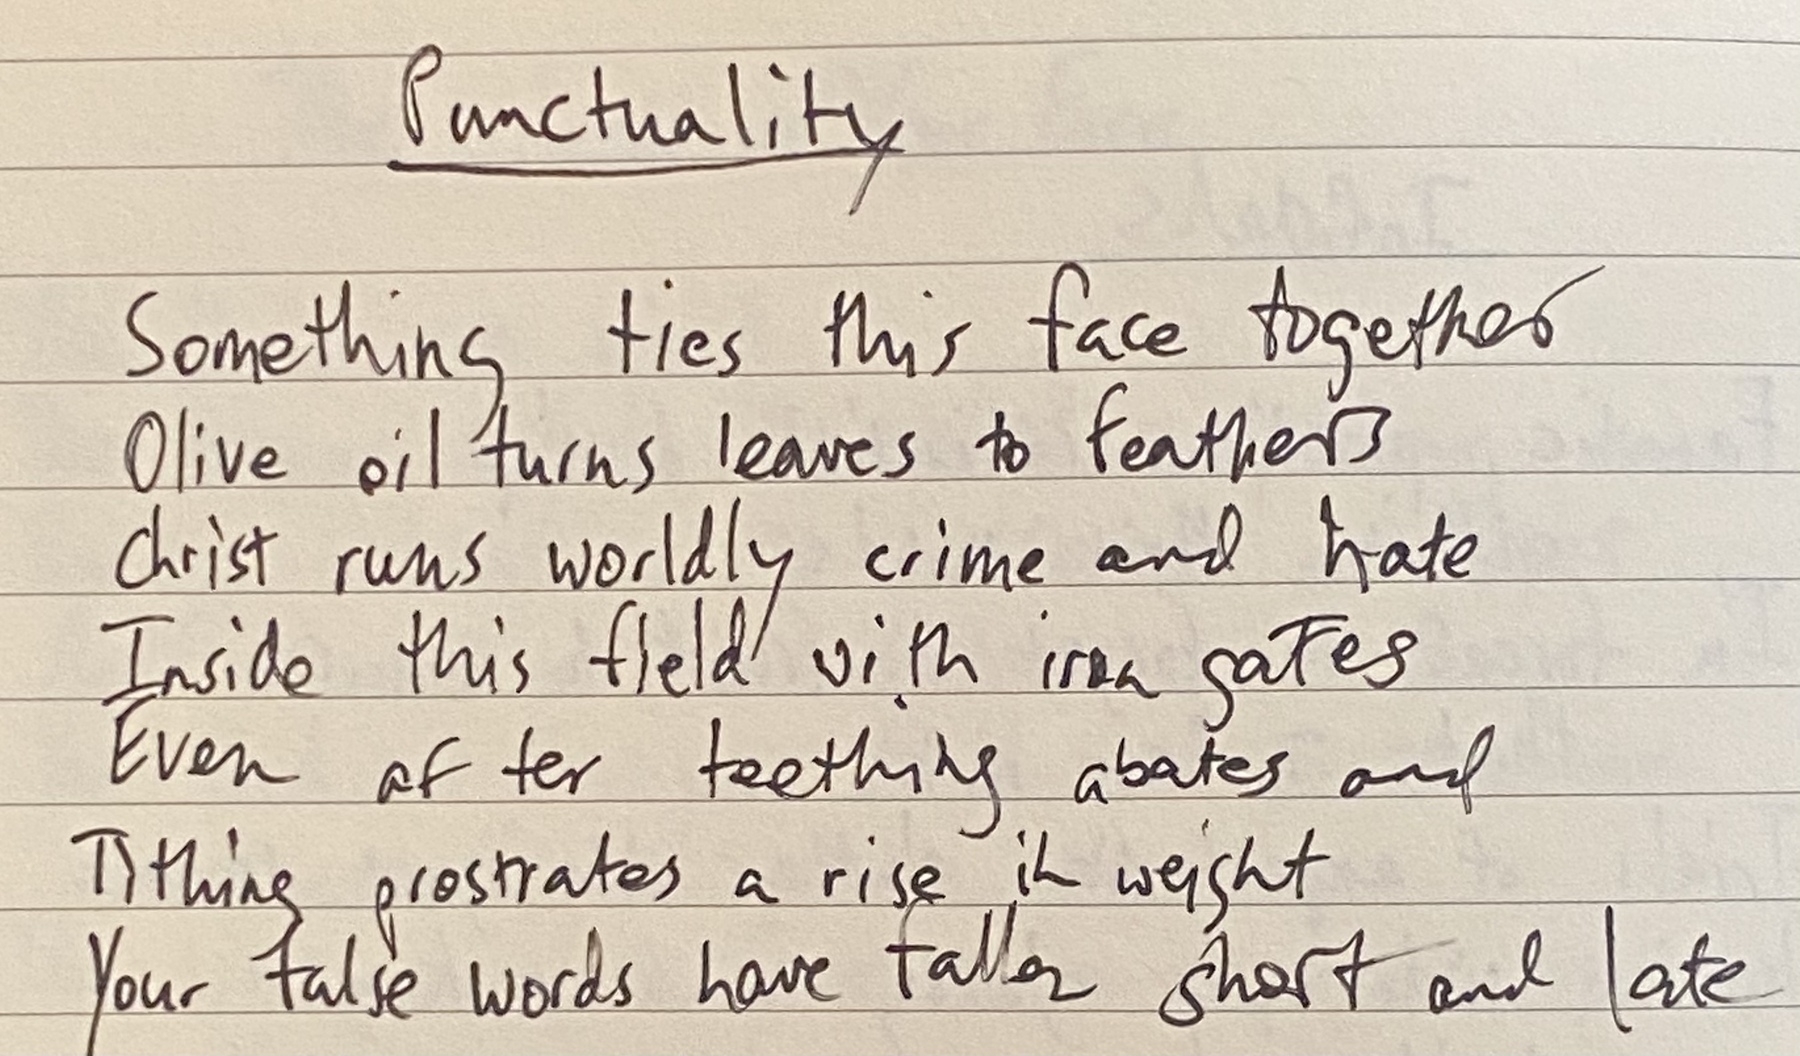 Punctuality
Something ties this face together
Olive oil turns leaves to feathers
Christ runs worldly crime and hate
Inside this field with iron gates
Even after teething abates and
Tithing prostrates a rise in weight
Your false words have fallen short and late